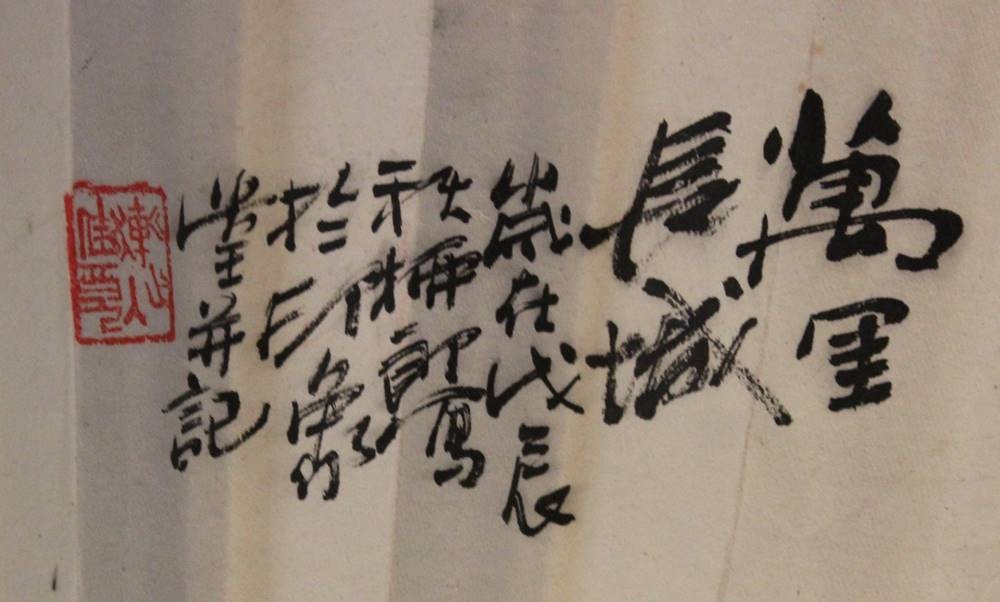 萬里
長城
歲在戊辰
秋郎寫
於象
堂并記